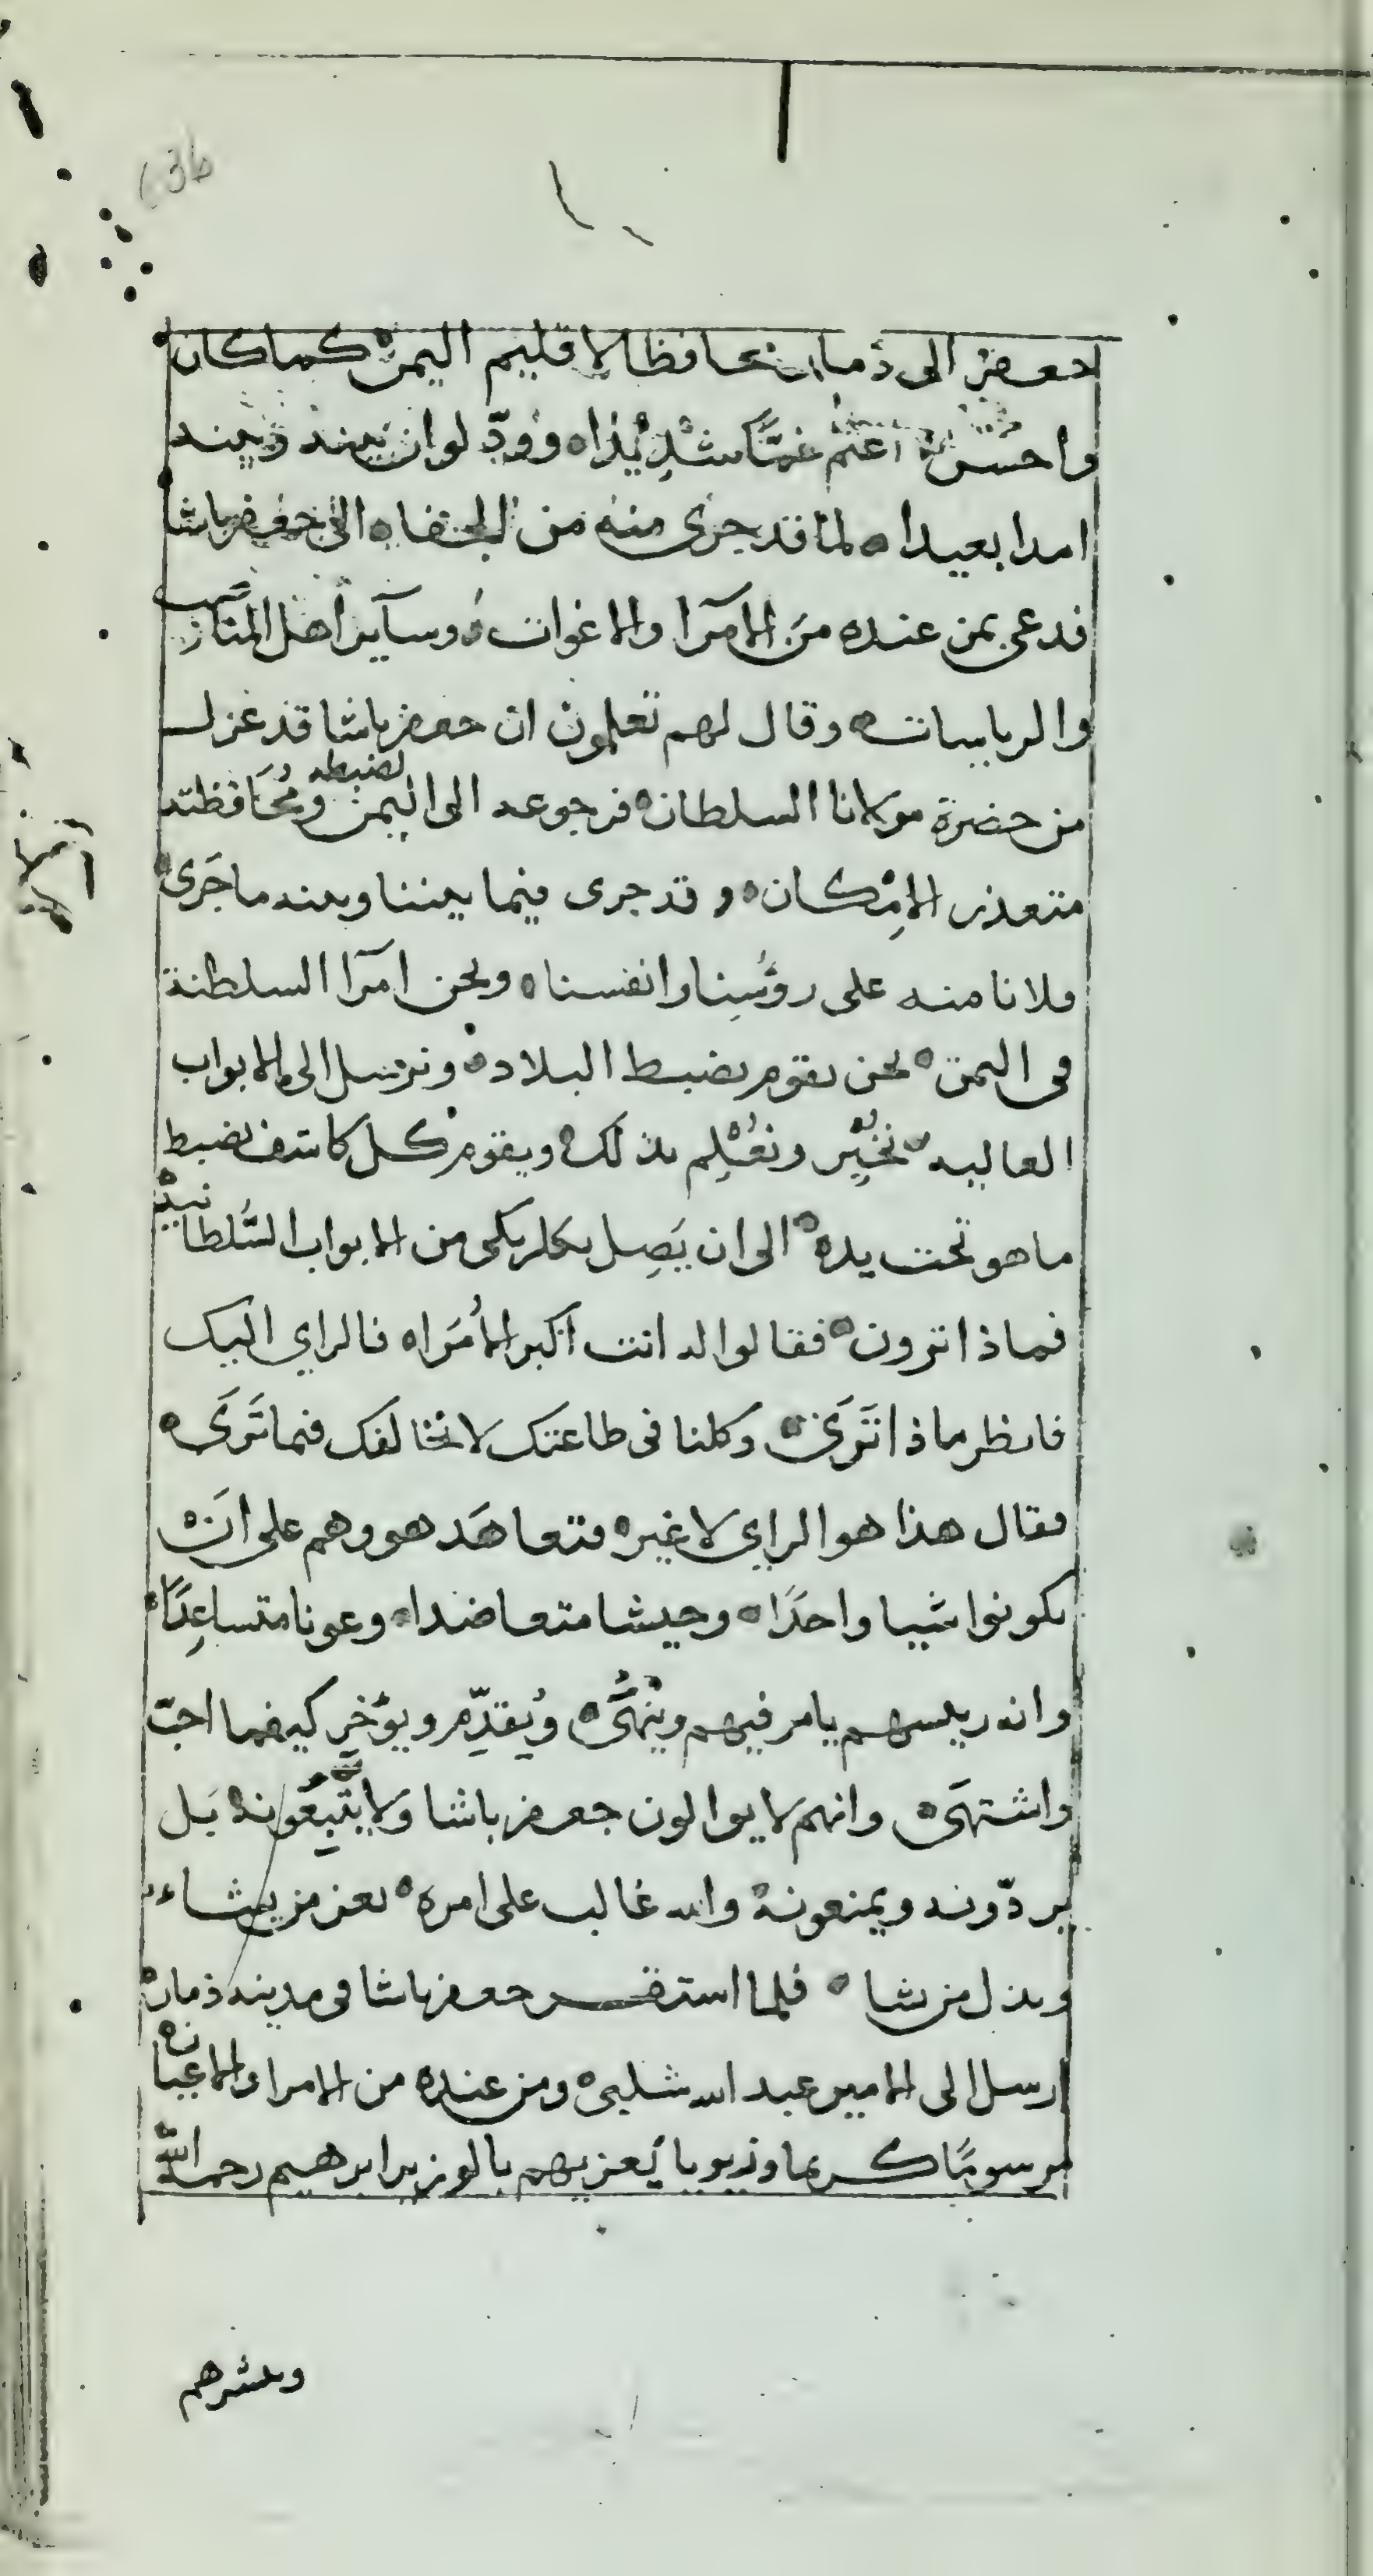 جعفر الى ذمار محافظا لاقليم اليمن كما كان
واحسن اغتم غمّا شديدا ووودّ لو ان بينه وبينه
امدا بعيدا لما قد جرى منه من الجفا الى جعفر باشا
فدعى بمن عنده من الامرآ والاغوات وسآير أهل المناصب
والرياسات وقال لهم تعلمون ان جعفر باشا قد عزل
من حضرة مولانا السلطان فرجوعه الى اليمن لضبطه ومُحَافظته
متعذر الامِكان وقد جرى فيما بيننا وبينه ما جَرى
ولانامنه على روُسِنا وانفسنا ونحن امرآ السلطنة
فى اليمن نحن نقوم بضبط البلاد ونرسل الى الابواب
العاليه نخْبِر ونعْلِم بذلك ويقوم كل كاشف بضبط
ما هو تحت يده الى ان يَصِل بكلربكى من الابواب السُّلطانيه
فماذا ترون فقالوا له انت اكبر الأُمَرا فالراي اليك
فانظر ماذا تَرَى وكلنا فى طاعتك لا نخالفك فيما تَرَى
فقال هذا هو الراي لا غيره فتعاهَد هو وهم على ان
يكونوا شيا واحدَا وجيشا متعاضدا وعونا متساعِدًا
وانه رييسهم يامر فيهم ويَنْهَى ويُقدِّم ويوَخِر كيفما احبّ
واشتهَى وانهم لا يوالون جعفر باشا ولا يتّبِعُونه بَل
يردّونه ويمنعونه والله غالب على امره يعز من يشاء
ويذل من يشا فلما استقر جعفر باشا فى مدينه ذمار
ارسل الى الامير عبد الله شلبى ومن عنده من الامرا والاعيان
مرسومًا كريما وزبوبا يُعزيهم بالوزير ابرهيم رحمه اللّه
ويبشرهم